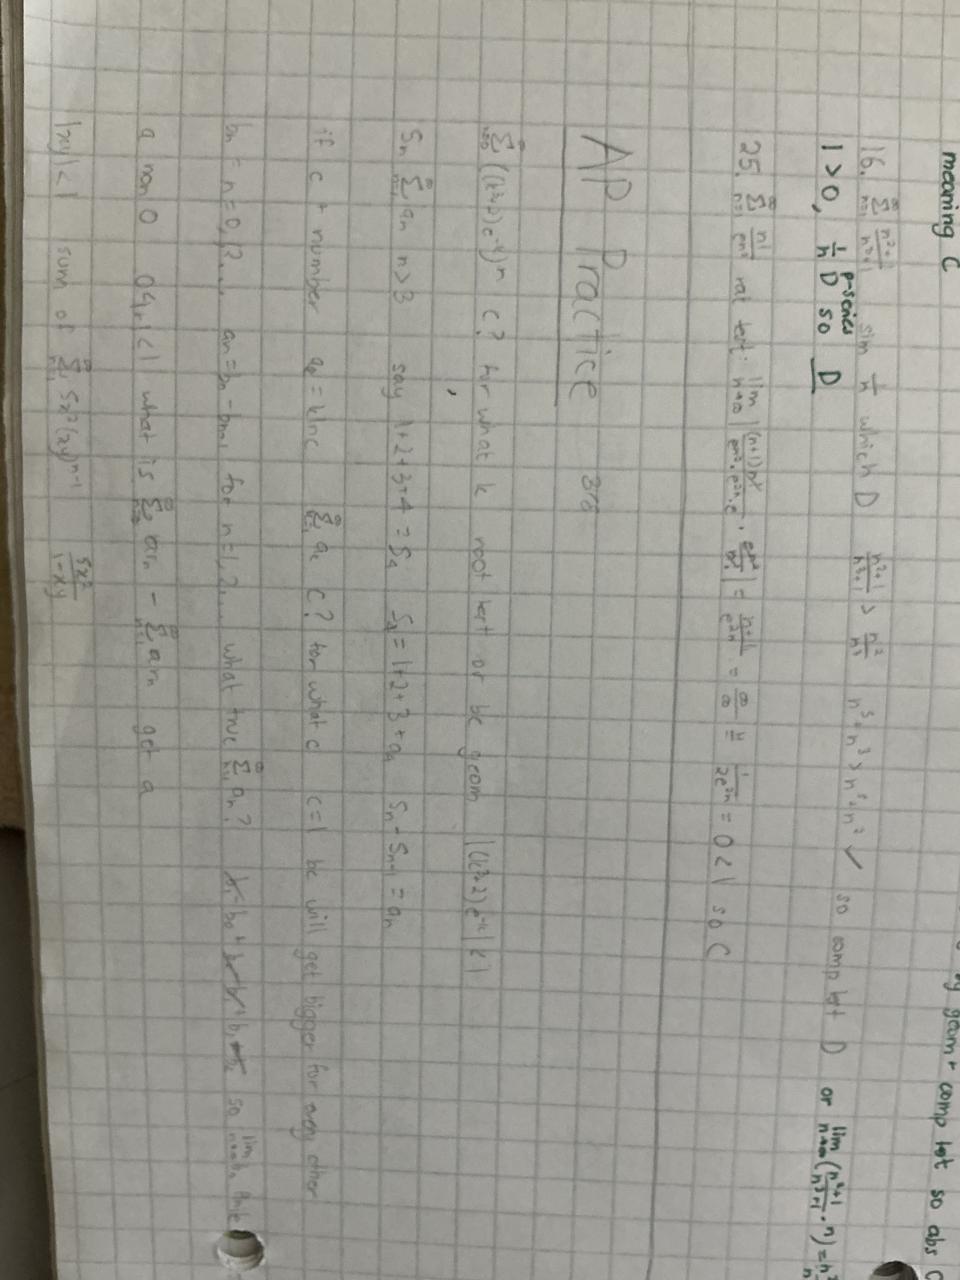 meaning C by geom + comp test so abs C
16. ∞Σn=1 n²+1/n³+1 sim 1/n which D n²+1/n³+1 > n²/n³ n⁵+n³ > n⁵+n² ✓ so comp test D or lim n→∞ (n²+1/n³+1 · n) =
1 > 0, 1/n p-series D so D
25. ∞Σn=1 n!/eⁿ² rat test: lim n→∞ |(n+1)n!/eⁿ²·e²ⁿ·e · eⁿ²/n!| = n+1/e²ⁿ = ∞/∞ 1/2e²ⁿ = 0 < 1 so C
AP Practice
∞Σ ((k³+2)e⁻ᵏ)ⁿ C? for what k root test or be geom |(k³+2)e⁻ᵏ| < 1
Sn ∞Σn=1 an n>3 say 1+2+3+4 = S₄ S₄ = 1+2+3+a₄ Sn - Sn-1 = an
if c + number = klnc ∞Σ C? for what c c=1 bc will get bigger for every other
bn = n=0,1,2... an = bn - bn-1 for n=1,2... what true ∞Σn=1 an? so lim n→∞ bn finite
a non 0 0<|r|<1 what is ∞Σn=0 arⁿ - ∞Σn=1 arⁿ get a
|xy| < 1 sum of ∞Σn=1 5x²(xy)ⁿ⁻¹ 5x²/1-xy